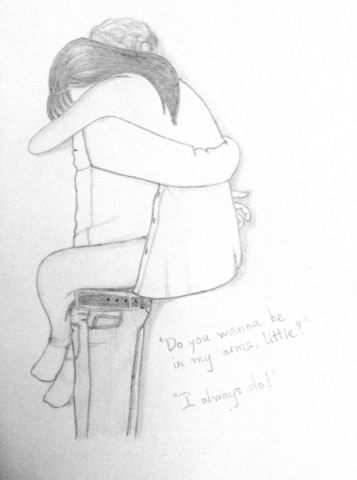 "Do you wanna be
in my arms, little?"
"I always do!"